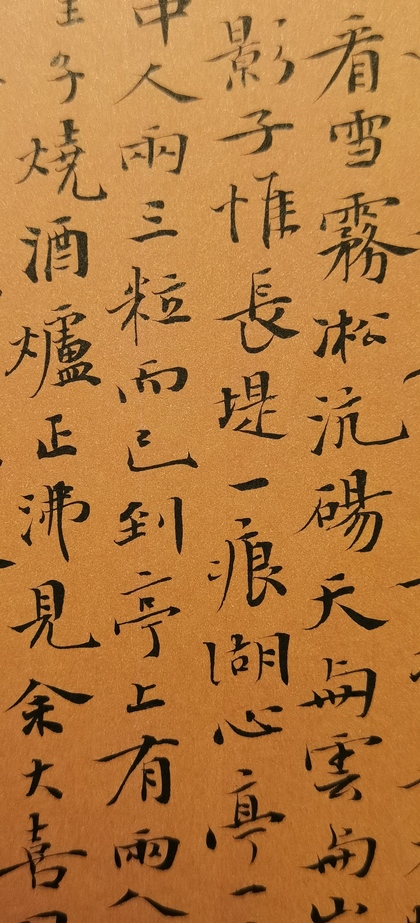 看雪霧凇沆碭天與雲與山
影子惟長堤一痕湖心亭一
中人兩三粒而已到亭上有兩人
童子燒酒爐正沸見余大喜